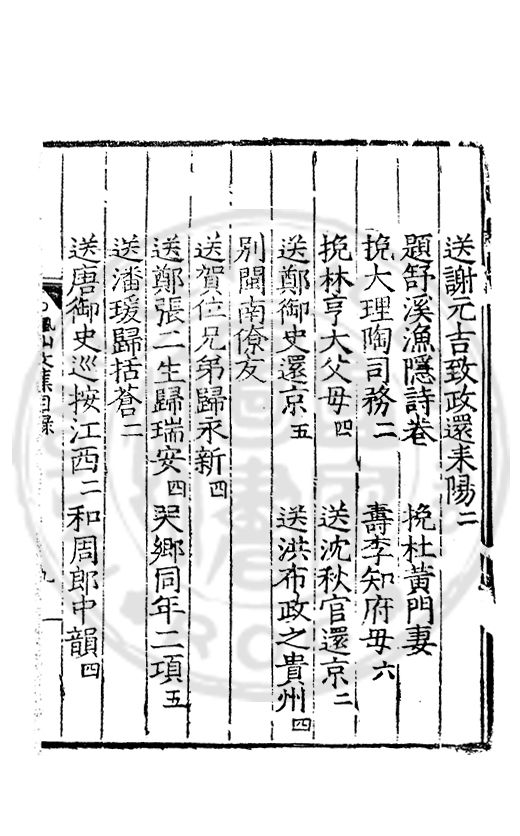 送謝元吉致政還耒陽二
題舒溪漁隱詩卷　挽杜黃門妻
挽大理陶司務二　壽李知府母六
挽林亨大父母四　送沈秋官還京二
送鄭御史還京五　送洪布政之貴州四
別閩南僚友
送賀位兄弟歸永新四
送鄭張二生歸瑞安四　哭鄉同年二項五
送潘瑗歸括蒼二
送唐御史巡按江西二　和周郎中韻四
山文集目錄　九